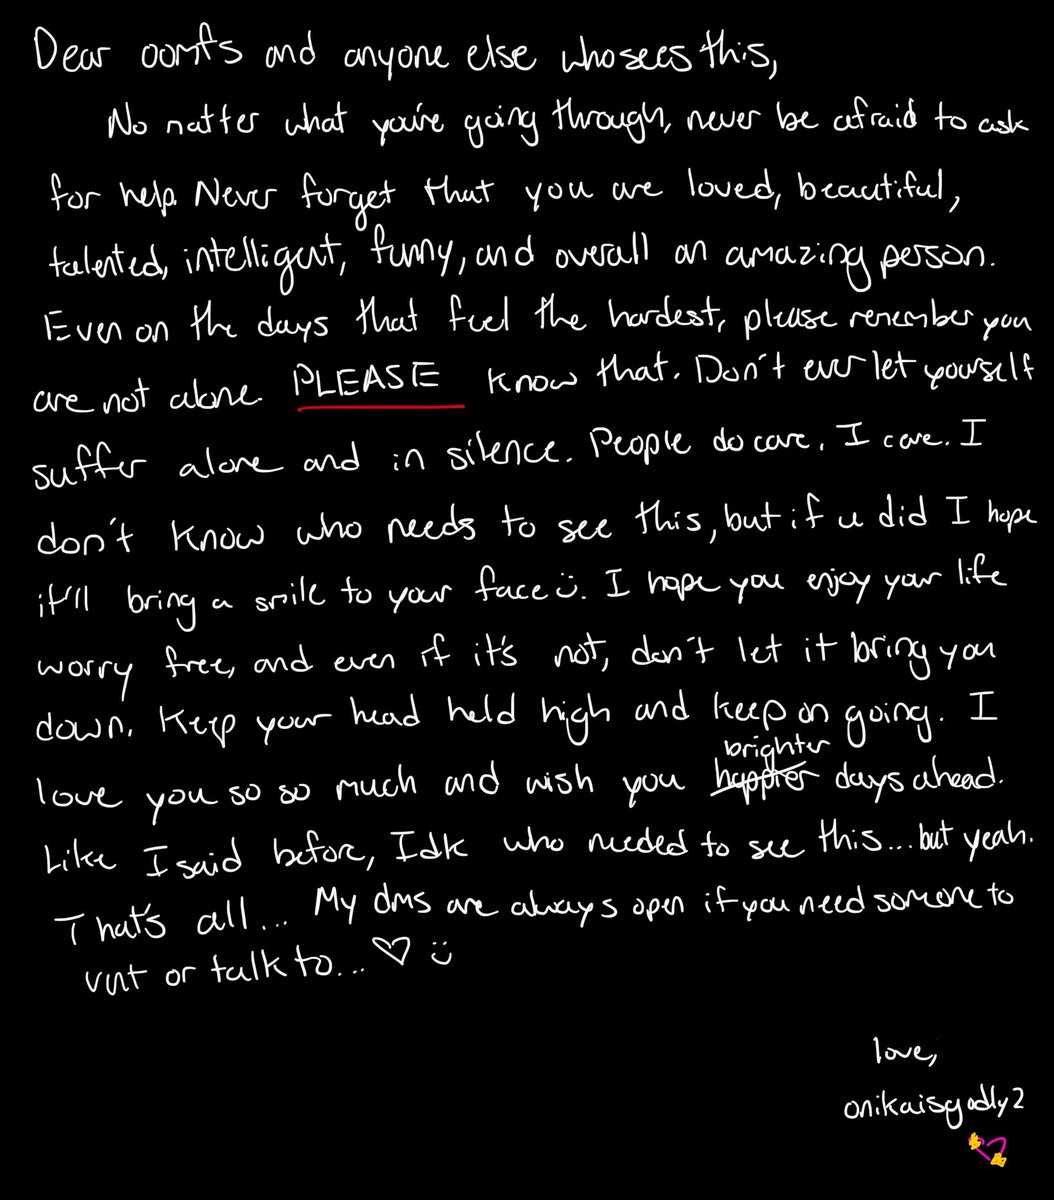 Dear oomfs and anyone else who sees this,
No natter what you're going through, never be afraid to ask
for help. Never forget that you are loved, beautiful,
talented, intelligent, funny, and overall an amazing person.
Even on the days that feel the hardest, please remember you
are not alone. PLEASE know that. Don't ever let yourself
suffer alone and in silence. People do care. I care. I
don't know who needs to see this, but if u did I hope
it'll bring a smile to your face :). I hope you enjoy your life
worry free, and even if it's not, don't let it bring you
down. Keep your head held high and keep on going. I
brighter
love you so so much and wish you happier days ahead.
Like I said before, Idk who needed to see this... but yeah.
That's all... My dms are always open if you need someone to
vent or talk to... ♡ :)
love,
onikaisgodly2